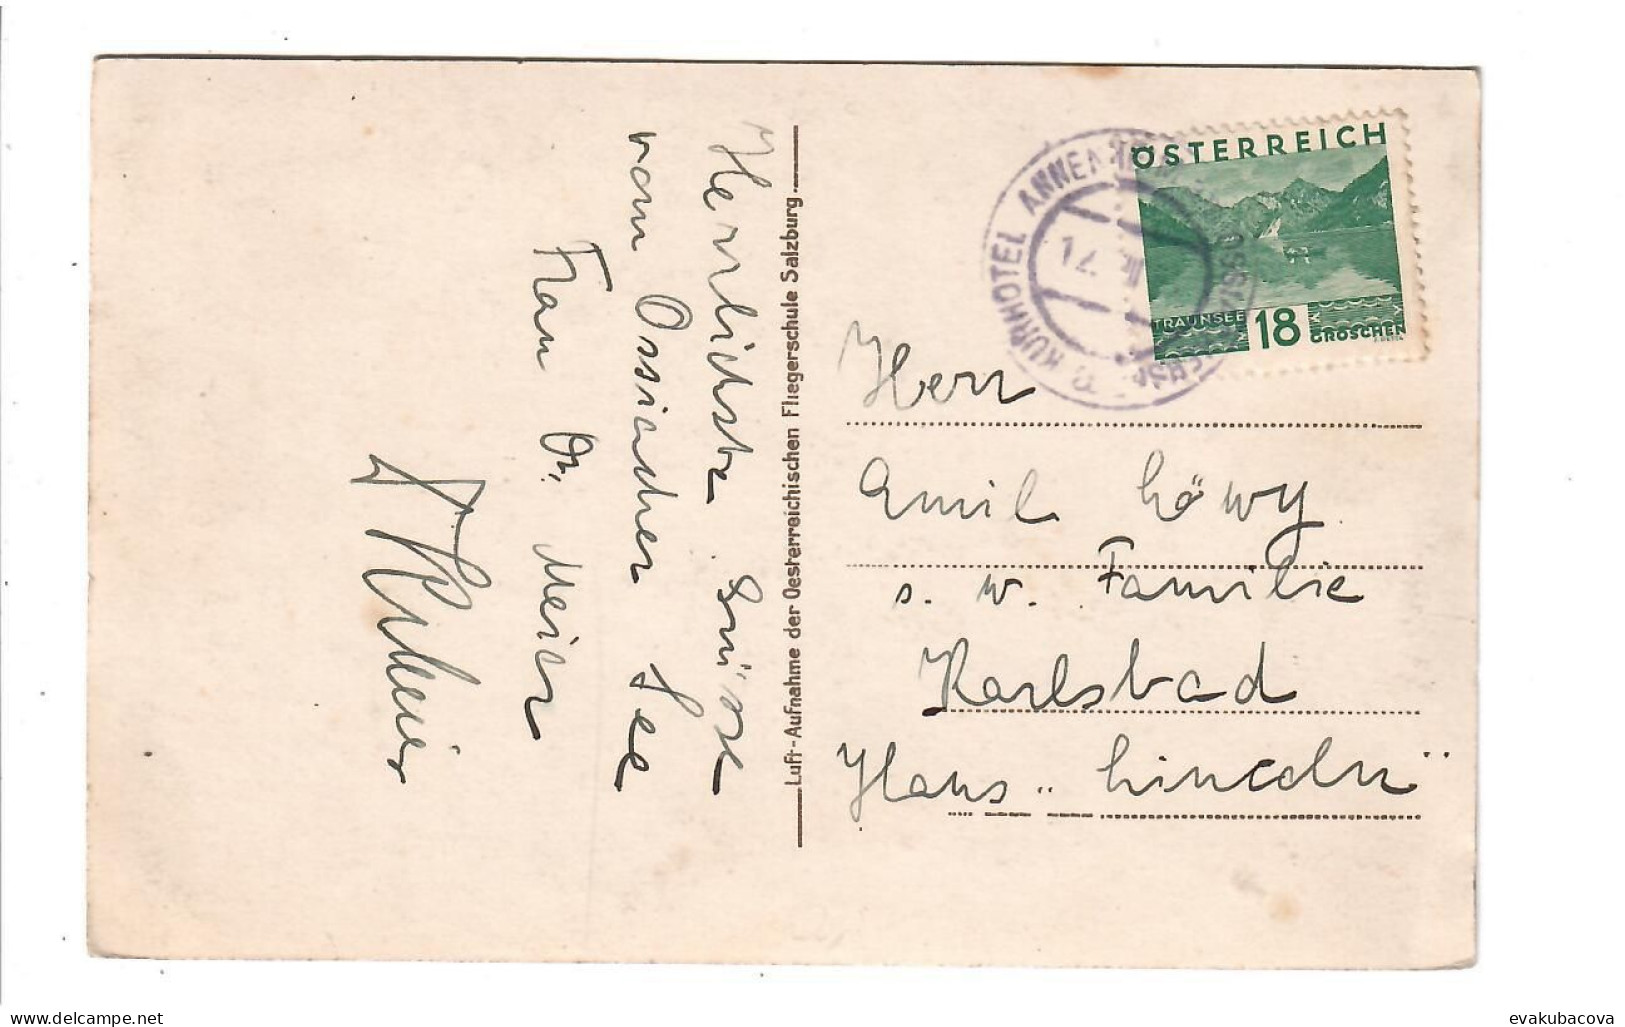 Herrlichste Grüsse
vom Ossiacher See
Frau Dr. Meier
Luft-Aufnahme der Oesterreichischen Fliegerschule Salzburg
KURHOTEL ANNENHEIM
12.
ÖSTERREICH
TRAUNSEE 18 GROSCHEN
Herr
Emil Löwy
s. w. Familie
Karlsbad
Haus „Lincoln"
delcampe.net
evakubacova